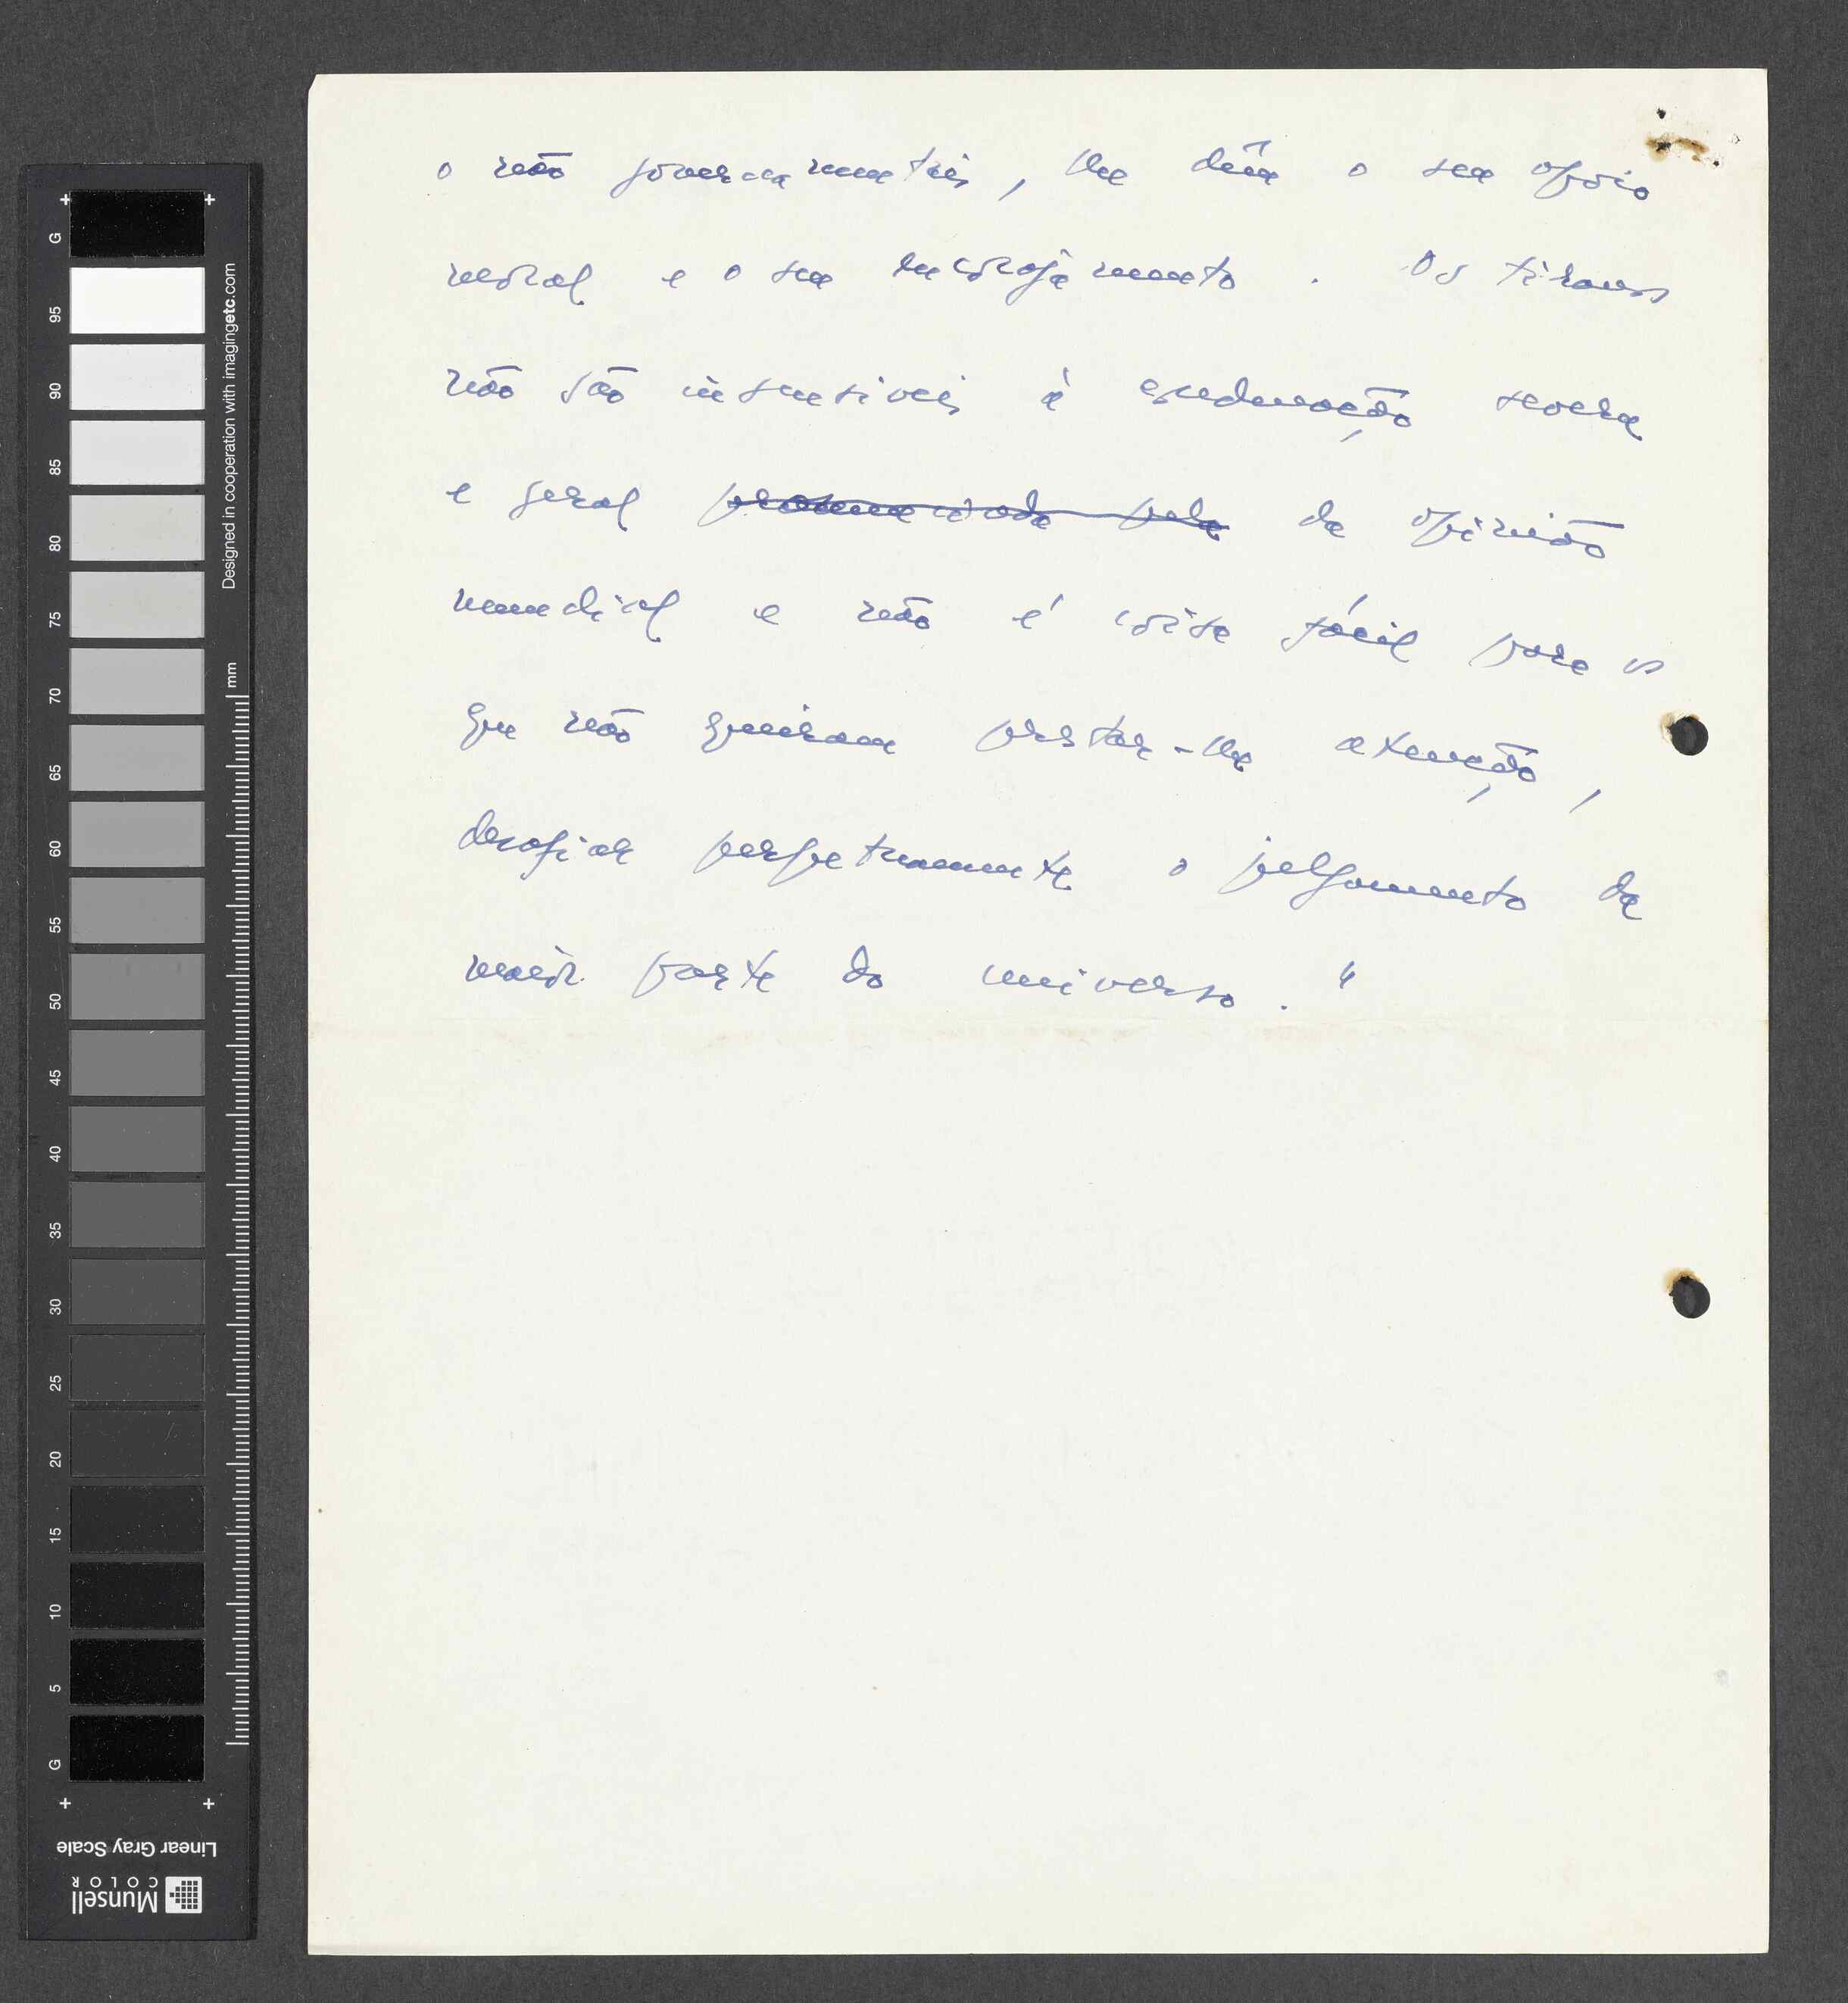 o não governamentais, lhe dêm o seu apoio
moral e o seu encorajamento. Os tiranos
não são insensíveis à condenação severa
e geral pronunciada pela da opinião
mundial e não é coisa fácil para os
que não queiram prestar-lhe atenção,
desafiar perpetuamente o julgamento da
maior parte do universo."
G
95
90
85
80
75
70
65
60
55
50
45
40
35
30
25
20
15
10
5
G
Designed in cooperation with imagingetc.com
mm
Linear Gray Scale
Munsell
COLOR